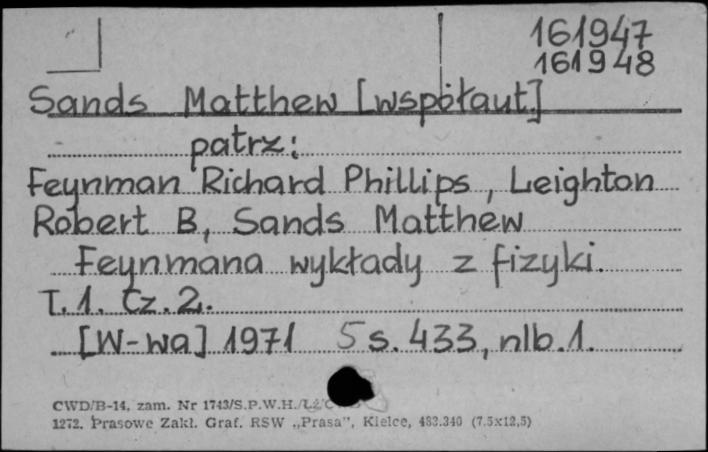 161947
161948
Sands Matthew [współaut.]
patrz:
Feynman Richard Phillips, Leighton
Robert B, Sands Matthew
Feynmana wykłady z fizyki.
T. 1. Cz. 2.
[W-wa] 1971 5 s. 433, nlb. 1.
CWD/B-14, zam. Nr 1743/S.P.W.H.
1272. Prasowe Zakł. Graf. RSW „Prasa", Kielce, 483.340 (7.5x12,5)